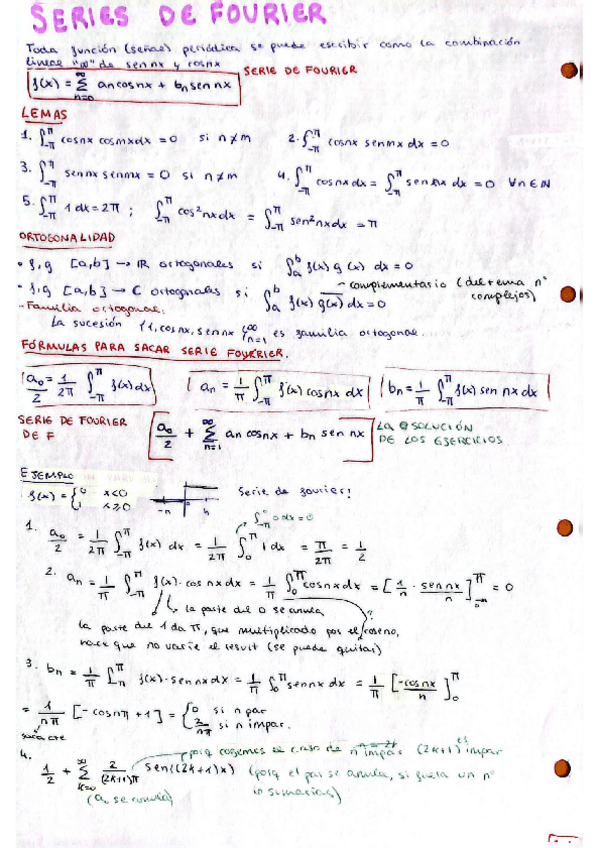 SERIES DE FOURIER
Toda función (señal) periódica se puede escribir como la combinación
lineal "∞" de sen nx y cosnx
SERIE DE FOURIER
f(x) = ∑_{n=0}^{∞} an cosnx + bn sen nx
LEMAS
1. ∫_{-π}^{π} cosnx cosmxdx = 0 si n≠m 2. ∫_{-π}^{π} cosnx senmx dx = 0
3. ∫_{-π}^{π} sennx senmx = 0 si n≠m 4. ∫_{-π}^{π} cosnxdx = ∫_{-π}^{π} sen nx dx = 0 ∀n∈ℕ
5. ∫_{-π}^{π} 1dx = 2π ; ∫_{-π}^{π} cos²nxdx = ∫_{-π}^{π} sen²nxdx = π
ORTOGONALIDAD
• f,g [a,b] → ℝ ortogonales si ∫_a^b f(x) g(x) dx = 0
• f,g [a,b] → ℂ ortogonales si ∫_a^b f(x) \overline{g(x)} dx = 0
complementario (del tema nº
complejos)
- Familia ortogonal:
La sucesión {1, cosnx, sennx}_{n=1}^{∞} es familia ortogonal.
FÓRMULAS PARA SACAR SERIE FOURRIER.
a₀/2 = 1/2π ∫_{-π}^{π} f(x)dx
an = 1/π ∫_{-π}^{π} f(x) cosnx dx
bn = 1/π ∫_{-π}^{π} f(x) sen nx dx
SERIE DE FOURIER
DE F
a₀/2 + ∑_{n=1}^{∞} an cosnx + bn sen nx
LA SOLUCIÓN
DE LOS EJERCICIOS
EJEMPLO
f(x) = { 0 x<0
1 x≥0
-π π
Serie de fourier?
∫_{-π}^{0} 0 dx = 0
1. a₀/2 = 1/2π ∫_{-π}^{π} f(x) dx = 1/2π ∫_0^π 1 dx = π/2π = 1/2
2. an = 1/π ∫_{-π}^{π} f(x)·cos nxdx = 1/π ∫_0^π cosnxdx = [1/π · sennx/n]_{-π}^{π} = 0
la parte del 0 se anula
la parte del 1 da π, que multiplicado por el coseno,
hace que no varíe el result (se puede quitar)
3. bn = 1/π ∫_{-π}^{π} f(x)·sennxdx = 1/π ∫_0^π sennx dx = 1/π [-cosnx/n]_0^π
= 1/nπ [-cosnπ + 1] = { 0 si n par
2/nπ si n impar.
saca cte
4.
porq cogemos el caso de n impar (2k+1) es impar
1/2 + ∑_{k=0}^{∞} 2/(2k+1)π sen((2k+1)x) (porq el par se anula, si fuera un nº
lo sumarías)
(a₀ se anula)